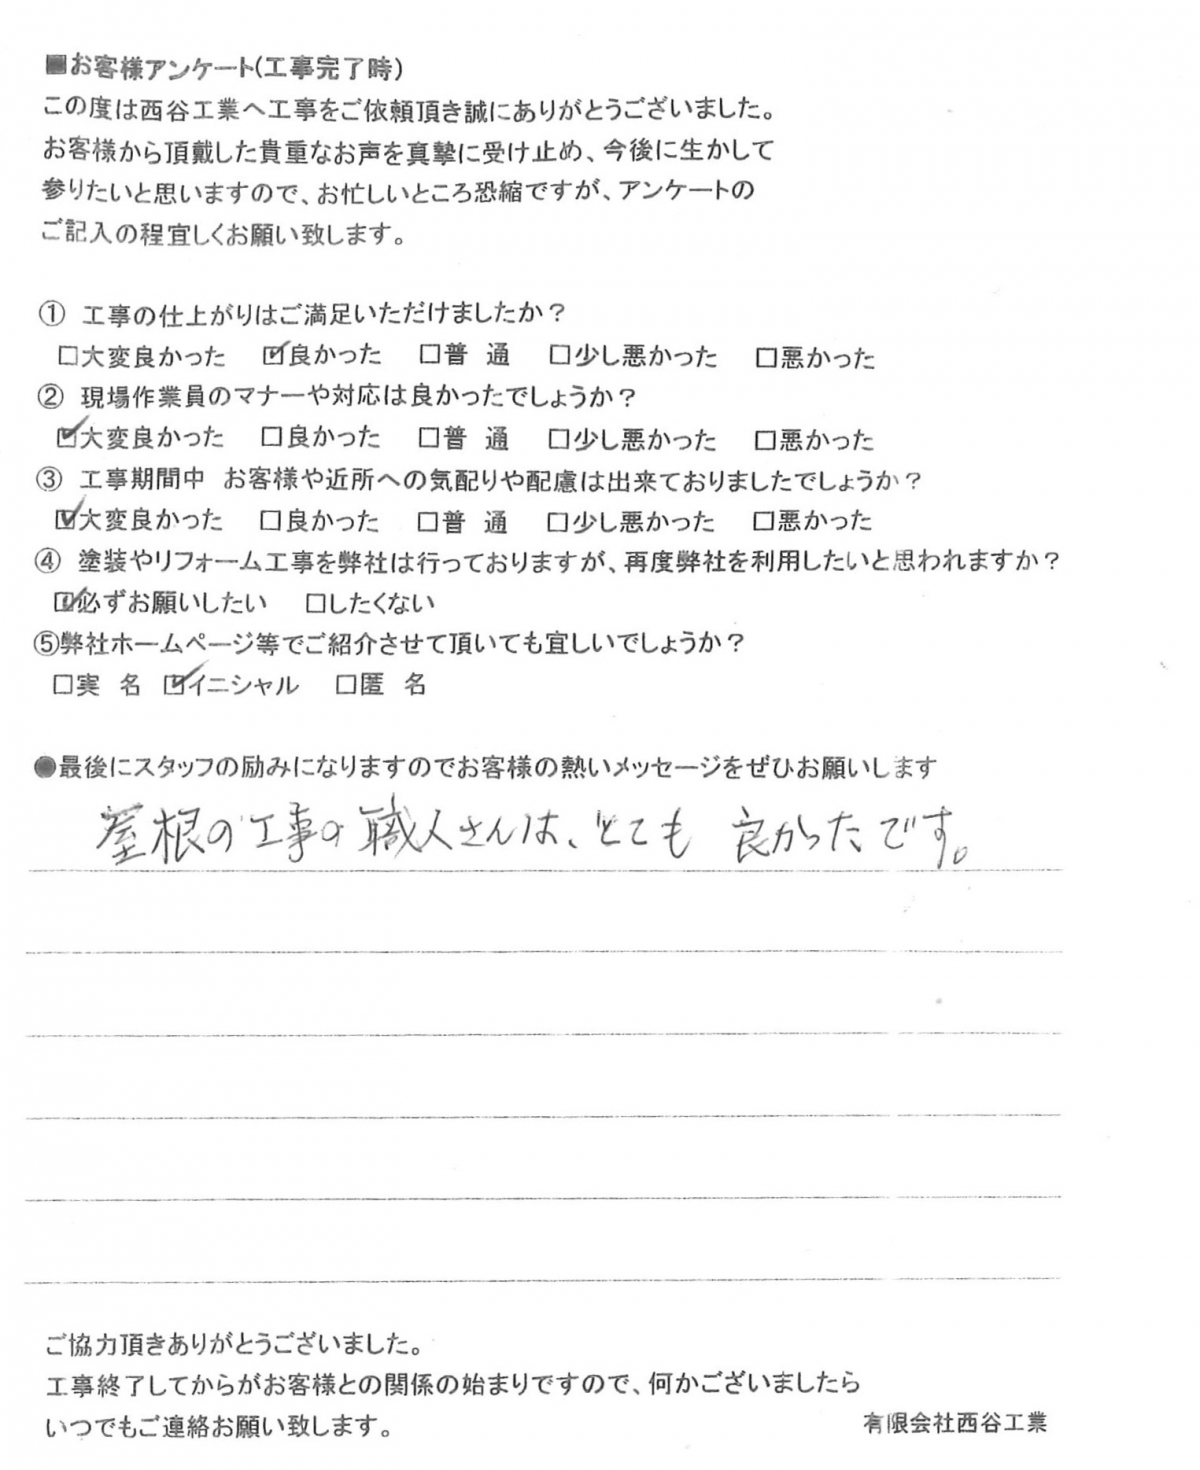 ■お客様アンケート(工事完了時)
この度は西谷工業へ工事をご依頼頂き誠にありがとうございました。
お客様から頂戴した貴重なお声を真摯に受け止め、今後に生かして
参りたいと思いますので、お忙しいところ恐縮ですが、アンケートの
ご記入の程宜しくお願い致します。
① 工事の仕上がりはご満足いただけましたか？
□大変良かった ☑良かった □普 通 □少し悪かった □悪かった
② 現場作業員のマナーや対応は良かったでしょうか？
☑大変良かった □良かった □普 通 □少し悪かった □悪かった
③ 工事期間中 お客様や近所への気配りや配慮は出来ておりましたでしょうか？
☑大変良かった □良かった □普 通 □少し悪かった □悪かった
④ 塗装やリフォーム工事を弊社は行っておりますが、再度弊社を利用したいと思われますか？
☑必ずお願いしたい □したくない
⑤弊社ホームページ等でご紹介させて頂いても宜しいでしょうか？
□実 名 ☑イニシャル □匿 名
●最後にスタッフの励みになりますのでお客様の熱いメッセージをぜひお願いします
屋根の工事の職人さんは、とても 良かったです。
ご協力頂きありがとうございました。
工事終了してからがお客様との関係の始まりですので、何かございましたら
いつでもご連絡お願い致します。 有限会社西谷工業